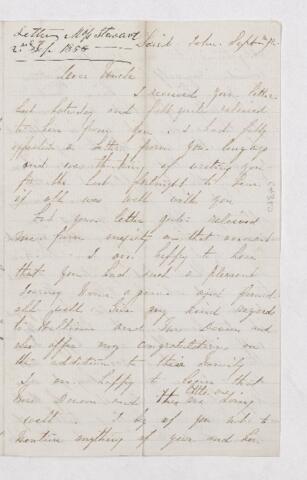 Letter Mrs Stewart
2nd Sep. 1858
Saint John, Sept
Dear Uncle
I received your letter
last Saturday and felt quite relieved
to hear from you. I had fully
expected a letter from you long ago
and was thinking of writing you
for the last fortnight to hear
if all was well with you
but your letter quite relieved
me from anxiety on that account
I am happy to hear
that you had such a pleasant
Journey home again and found
all well. Give my kind regards
to William and Mrs Deacon and
also offer my congratulations on
the addition to their family
I am happy to learn that
Mrs Deacon and the little one are doing
well. I beg of you not to
mention anything of your and